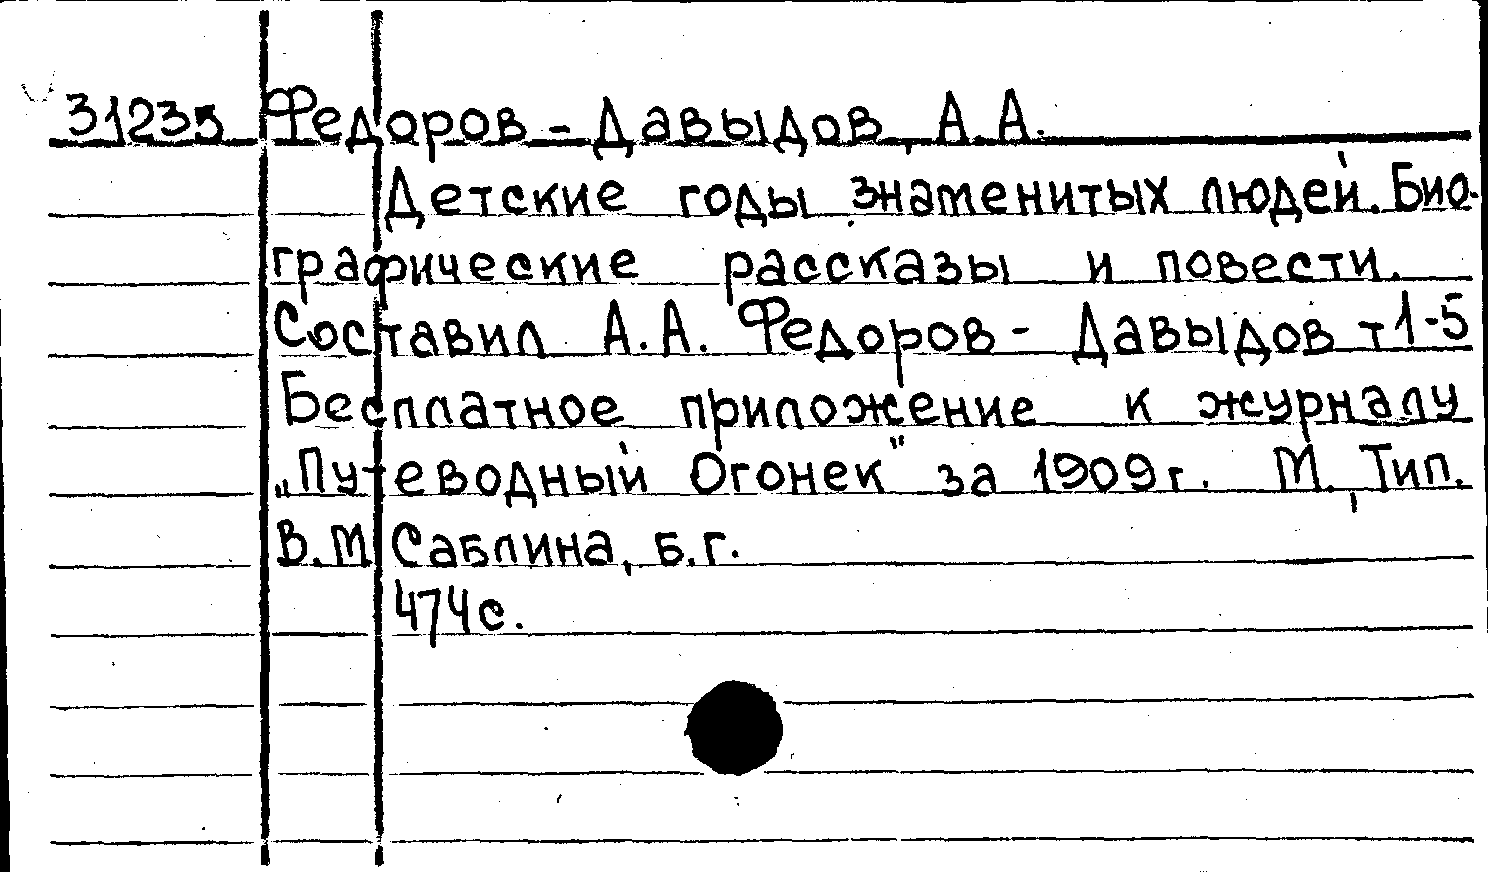 31235 Федоров - Давыдов, А.А.
Детские годы знаменитых людей. Био-
графические рассказы и повести.
Составил А.А. Федоров - Давыдов т 1-5
Бесплатное приложение к журналу
„Путеводный Огонек" за 1909 г. М., Тип.
В.М. Саблина, б.г.
474 с.